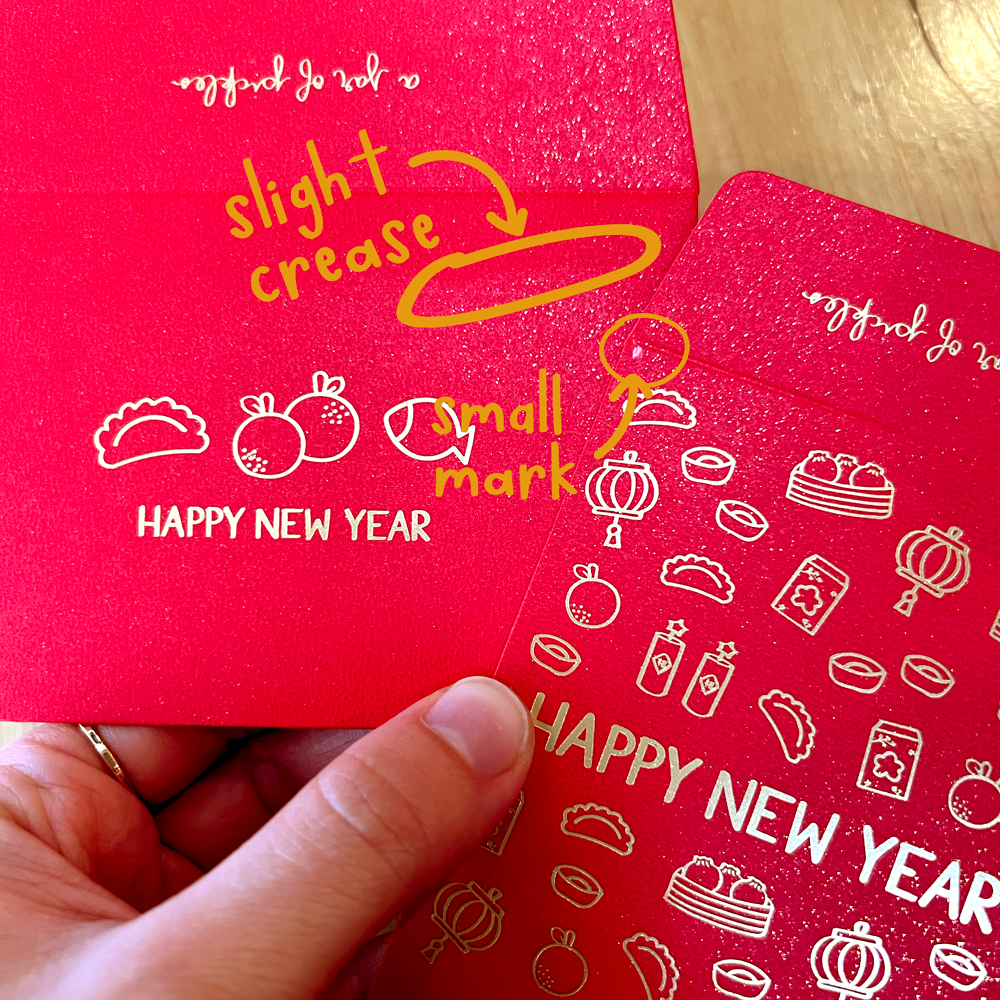 a jar of pickles
slight
crease
small
mark
HAPPY NEW YEAR
jar of pickles
HAPPY NEW YEAR